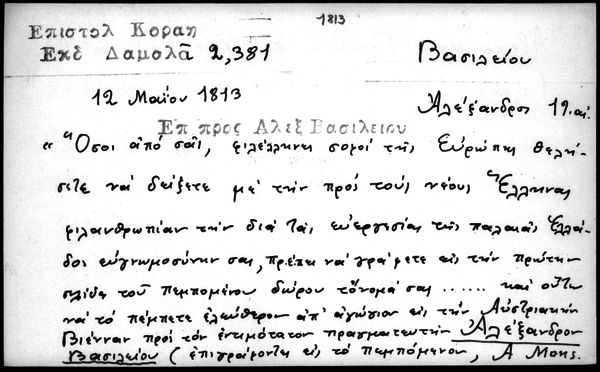 1813
Επιστολ Κοραη
Εκδ Δαμαλᾶ 2,381
Βασιλείου
12 Μαΐου 1813
Ἀλέξανδρος 19. αἰ.
Επ προς Αλεξ Βασιλειου
« Ὅσοι ἀπὸ σᾶς, φιλέλληνες σοφοὶ τῆς Εὐρώπης θελή-
σετε νὰ δείξετε μὲ τὴν πρὸς τοὺς νέους Ἕλληνας
φιλανθρωπίαν τὴν διὰ τὰς εὐεργεσίας τῆς παλαιᾶς Ἑλλά-
δος εὐγνωμοσύνην σας, πρέπει νὰ γράψετε εἰς τὴν πρώτην
σελίδα τοῦ πεμπομένου δώρου τὄνομά σας ...... καὶ οὕτω
νὰ τὸ πέμπετε ἐλεύθερον ἀπ' ἀγώγιον εἰς τὴν Αὐστριακὴν
Βιένναν πρὸς τὸν ἐντιμότατον πραγματευτὴν Ἀλέξανδρον
Βασιλείου (ἐπιγράφοντες εἰς τὸ πεμπόμενον, A Mons.